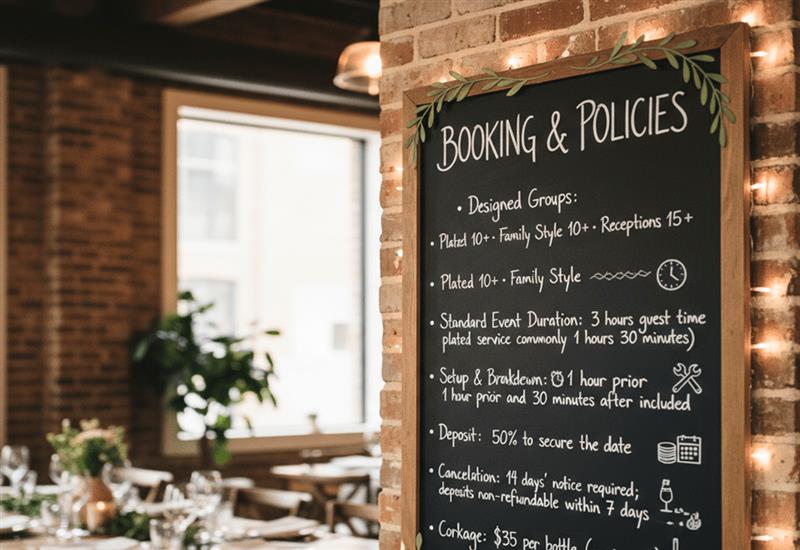 BOOKING & POLICIES
• Designed Groups:
• Plated 10+ · Family Style 10+ · Receptions 15+
• Plated 10+ · Family Style
• Standard Event Duration: 3 hours guest time
plated service commonly 1 hours 30 minutes)
• Setup & Breakdown: 1 hour prior
1 hour prior and 30 minutes after included
• Deposit: 50% to secure the date
• Cancelation: 14 days' notice required;
deposits non-refundable within 7 days
• Corkage: $35 per bottle